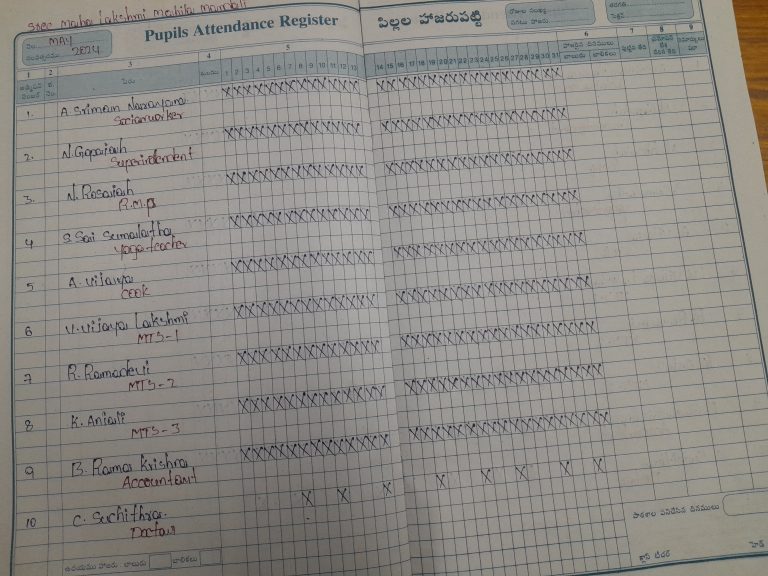 Sree Maha Lakshmi Mahila Mandali
Pupils Attendance Register
పిల్లల హాజరుపట్టి
నెల MAY
సంవత్సరము 2024
1 2 3 4 5 6 7 8 9
పేరు
1 2 3 4 5 6 7 8 9 10 11 12 13 14 15 16 17 18 19 20 21 22 23 24 25 26 27 28 29 30 31
1. A. Sriman Narayana
Socialworker
2. N. Gopaiah
Superintendent
3. N. Rosaiah
R.M.P
4 S. Sai Sumalatha
Yoga teacher
5 A. Vijaya
COOK
6 V. Vijaya Lakshmi
MTS-1
7 R. Ramadevi
MTS-2
8 K. Anjali
MTS-3
9 B. Rama Krishna
Accountant
10 C. Suchithra
Doctor
ఉదయము హాజరు బాలురు బాలికలు
పాఠశాల పనిచేసిన దినములు
క్లాస్ టీచర్
హెడ్